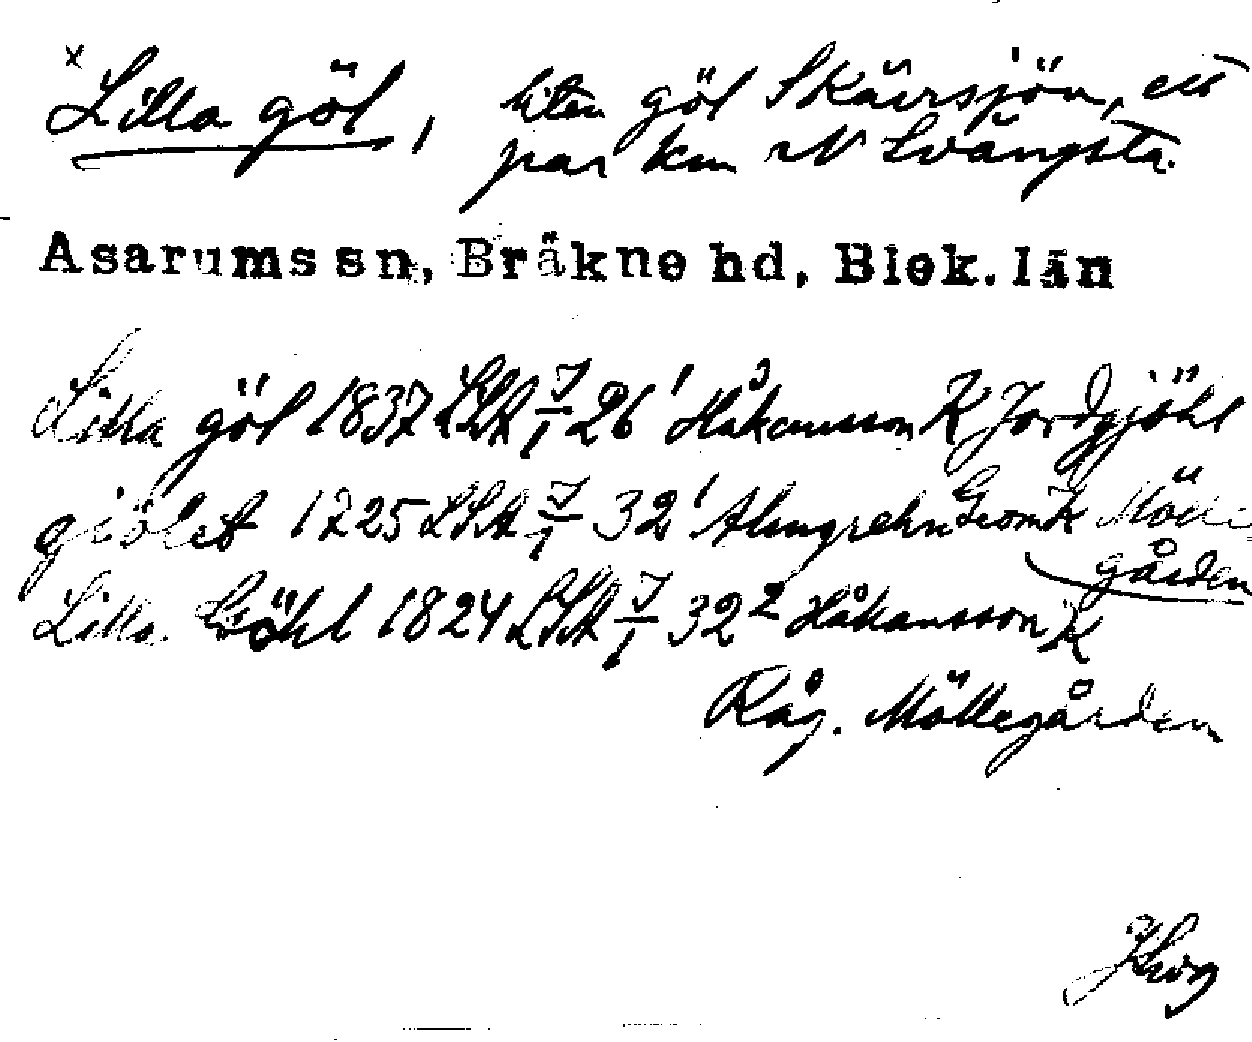 x Lilla göl, liten göl Skärsjön, ett
par km N Svängsta.
Asarums sn, Bräkne hd, Blek. län
Lilla göl 1837 LSA J/1 26¹ Håkansson K Jordgjöhl
giölet 1725 LSA J/1 32¹ Almgrehn Geom K Mölle
gården
Lilla Göhl 1824 LSA J/1 32² Håkansson K
Råg. Möllegården